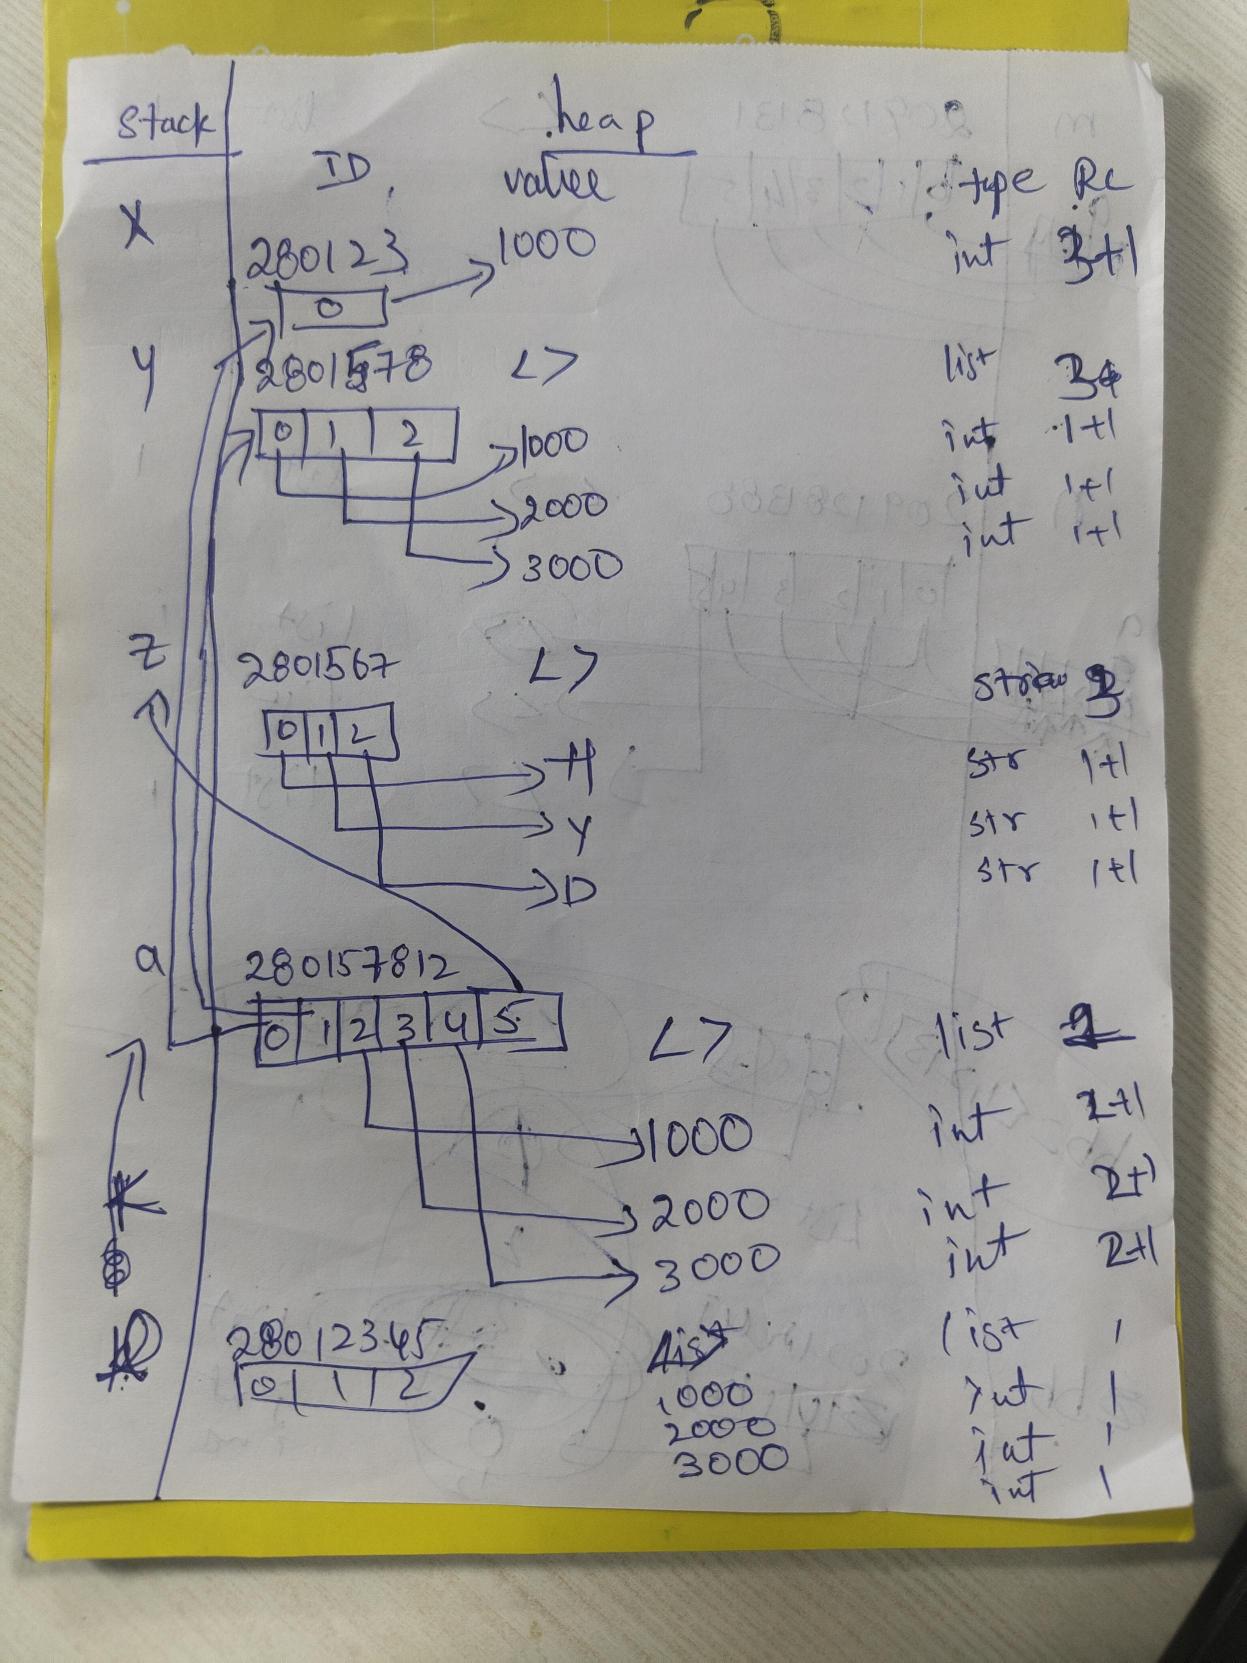 Stack heap
ID value type Rc
X
280123 1000 int 3+1
0
y 2801578 <> list 3
0 1 2 1000 int 1+1
2000 int 1+1
3000 int 1+1
Z 2801567 <> 3
0 1 2
H str 1+1
Y str 1+1
D str 1+1
a 280157812
0 1 2 3 4 5 <> list 2
1000 int 2+1
2000 int 2+1
3000 int 2+1
K
28012345 list list 1
0 1 2 1000 int 1
2000 int 1
3000 int 1